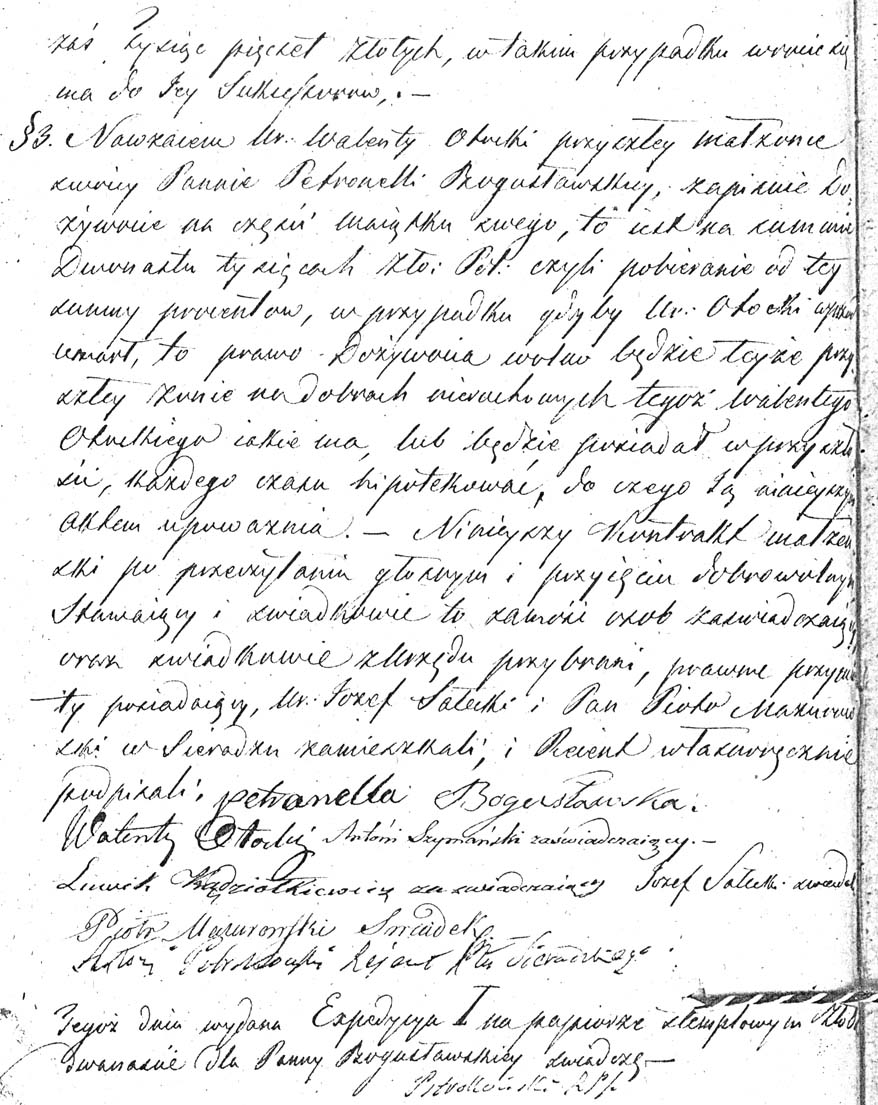 zaś Tysiąc pięćset złotych, w takim przypadku wrócić się
ma do Jey Sukcessorow, . —
§3. Nawzaiem Ur. Walenty Otocki przyszłey małżonce
swoiey Pannie Petronelli Bogusławskiey, zapisuie Do-
żywocie na części maiątku swego, to iest na summie
Dwunastu tysięcach Zło: Pol: czyli pobieranie od tey
summy procentow, w przypadku gdyby Ur. Otocki
umarł, to prawo Dożywocia wolno będzie teyże przy
szłey żonie na dobrach nieruchomych tegoż Walentego
Otockiego iakie ma, lub będzie posiadał w przyszło
ści, każdego czasu hipotekować, do czego Ją ninieyszym
Aktem upoważnia. — Ninieyszy Kontrakt małżeń
ski po przeczytaniu głosnym i przyięciu dobrowolnym
Stawaiący i swiadkowie to samość osob zaswiadczaiący
oraz swiadkowie z Urzędu przybrani, prawne przymio
ty posiadaiący, Ur. Jozef Sałecki i Pan Piotr Mazurow
ski w Sieradzu zamieszkali, i Reient własnoręcznie
podpisali. Petronella Bogusławska.
Walenty Otocki Antoni Szymański zaświadczaiący. —
Ludwik Kędziołkiewicz zaswiadczaiący Jozef Sałecki swiadek
Piotr Mazurowski Swiadek
Antoni Pstrokoński Rejent Ptu Sieradzkiego
Tegoż dnia wydana Expedycya I na papierze stemplowym Złot
dwanaście dla Panny Bogusławskiey swiadczę —
Pstrokoński RPS.